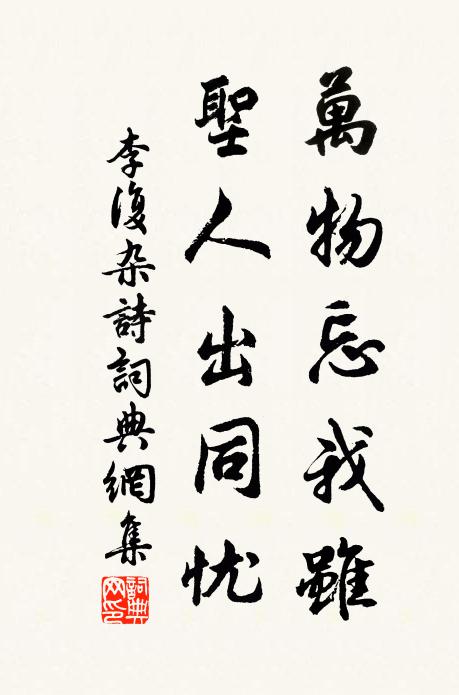 萬物忘我雖
聖人出同忧
李復杂詩詞典網集
詞典网印